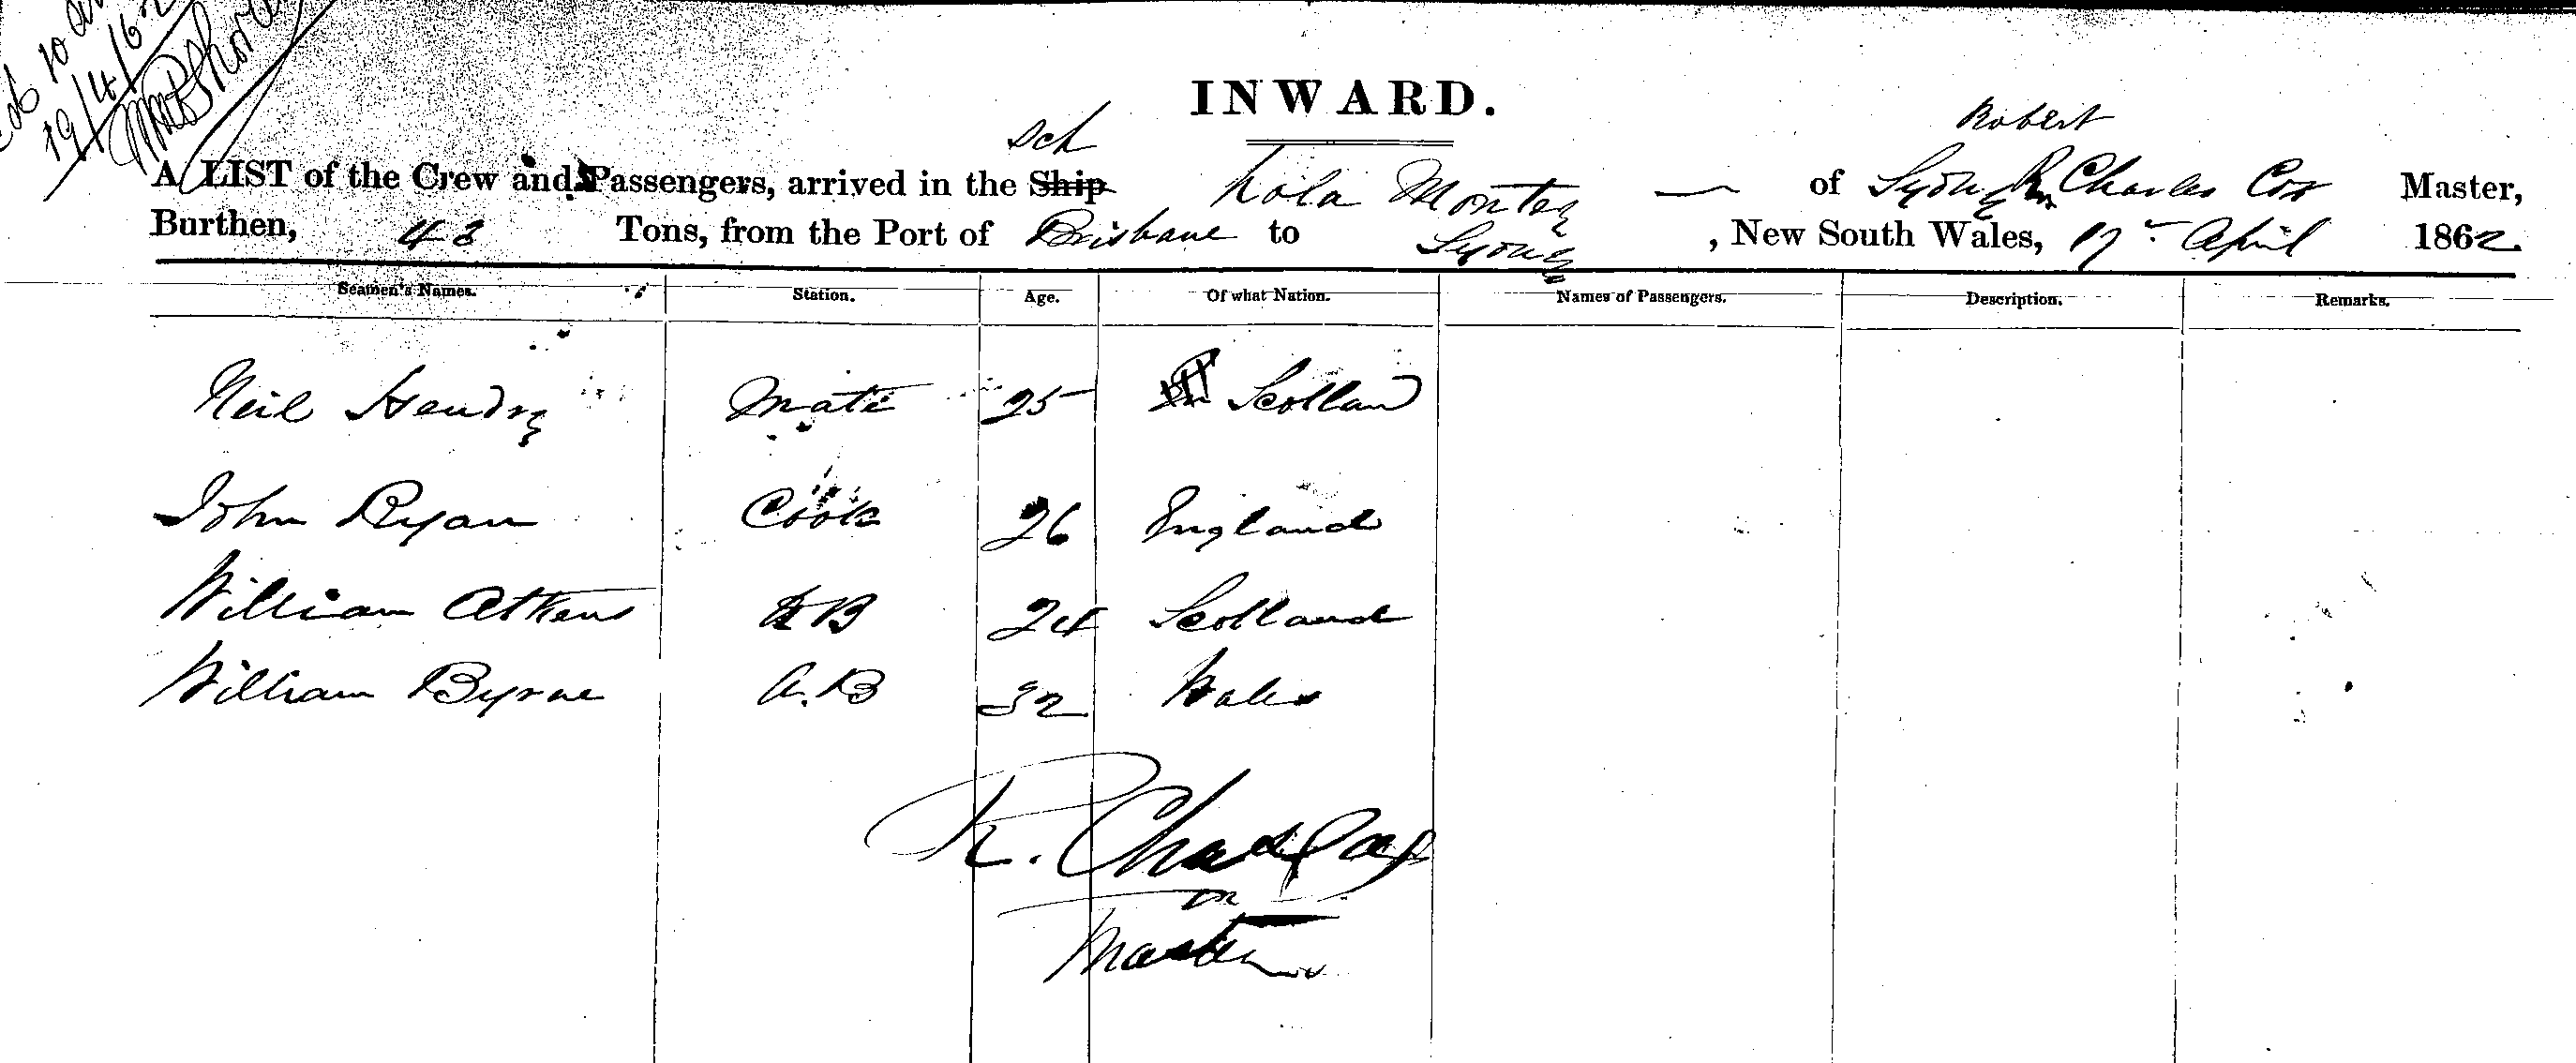 10
19/4/62
INWARD.
sch Robert
A LIST of the Crew and Passengers, arrived in the Ship Lola Montez of Sydney R Charles Cox Master,
Burthen, 43 Tons, from the Port of Brisbane to Sydney, New South Wales, 17 April 1862.
Seamen's Names. Station. Age. Of what Nation. Names of Passengers. Description. Remarks.
Neil Hendry Mate 25 Scotland
John Ryan Cook 26 England
William Atkens AB 24 Scotland
William Byrne A.B 32 Wales
R. Chas Cox
Master